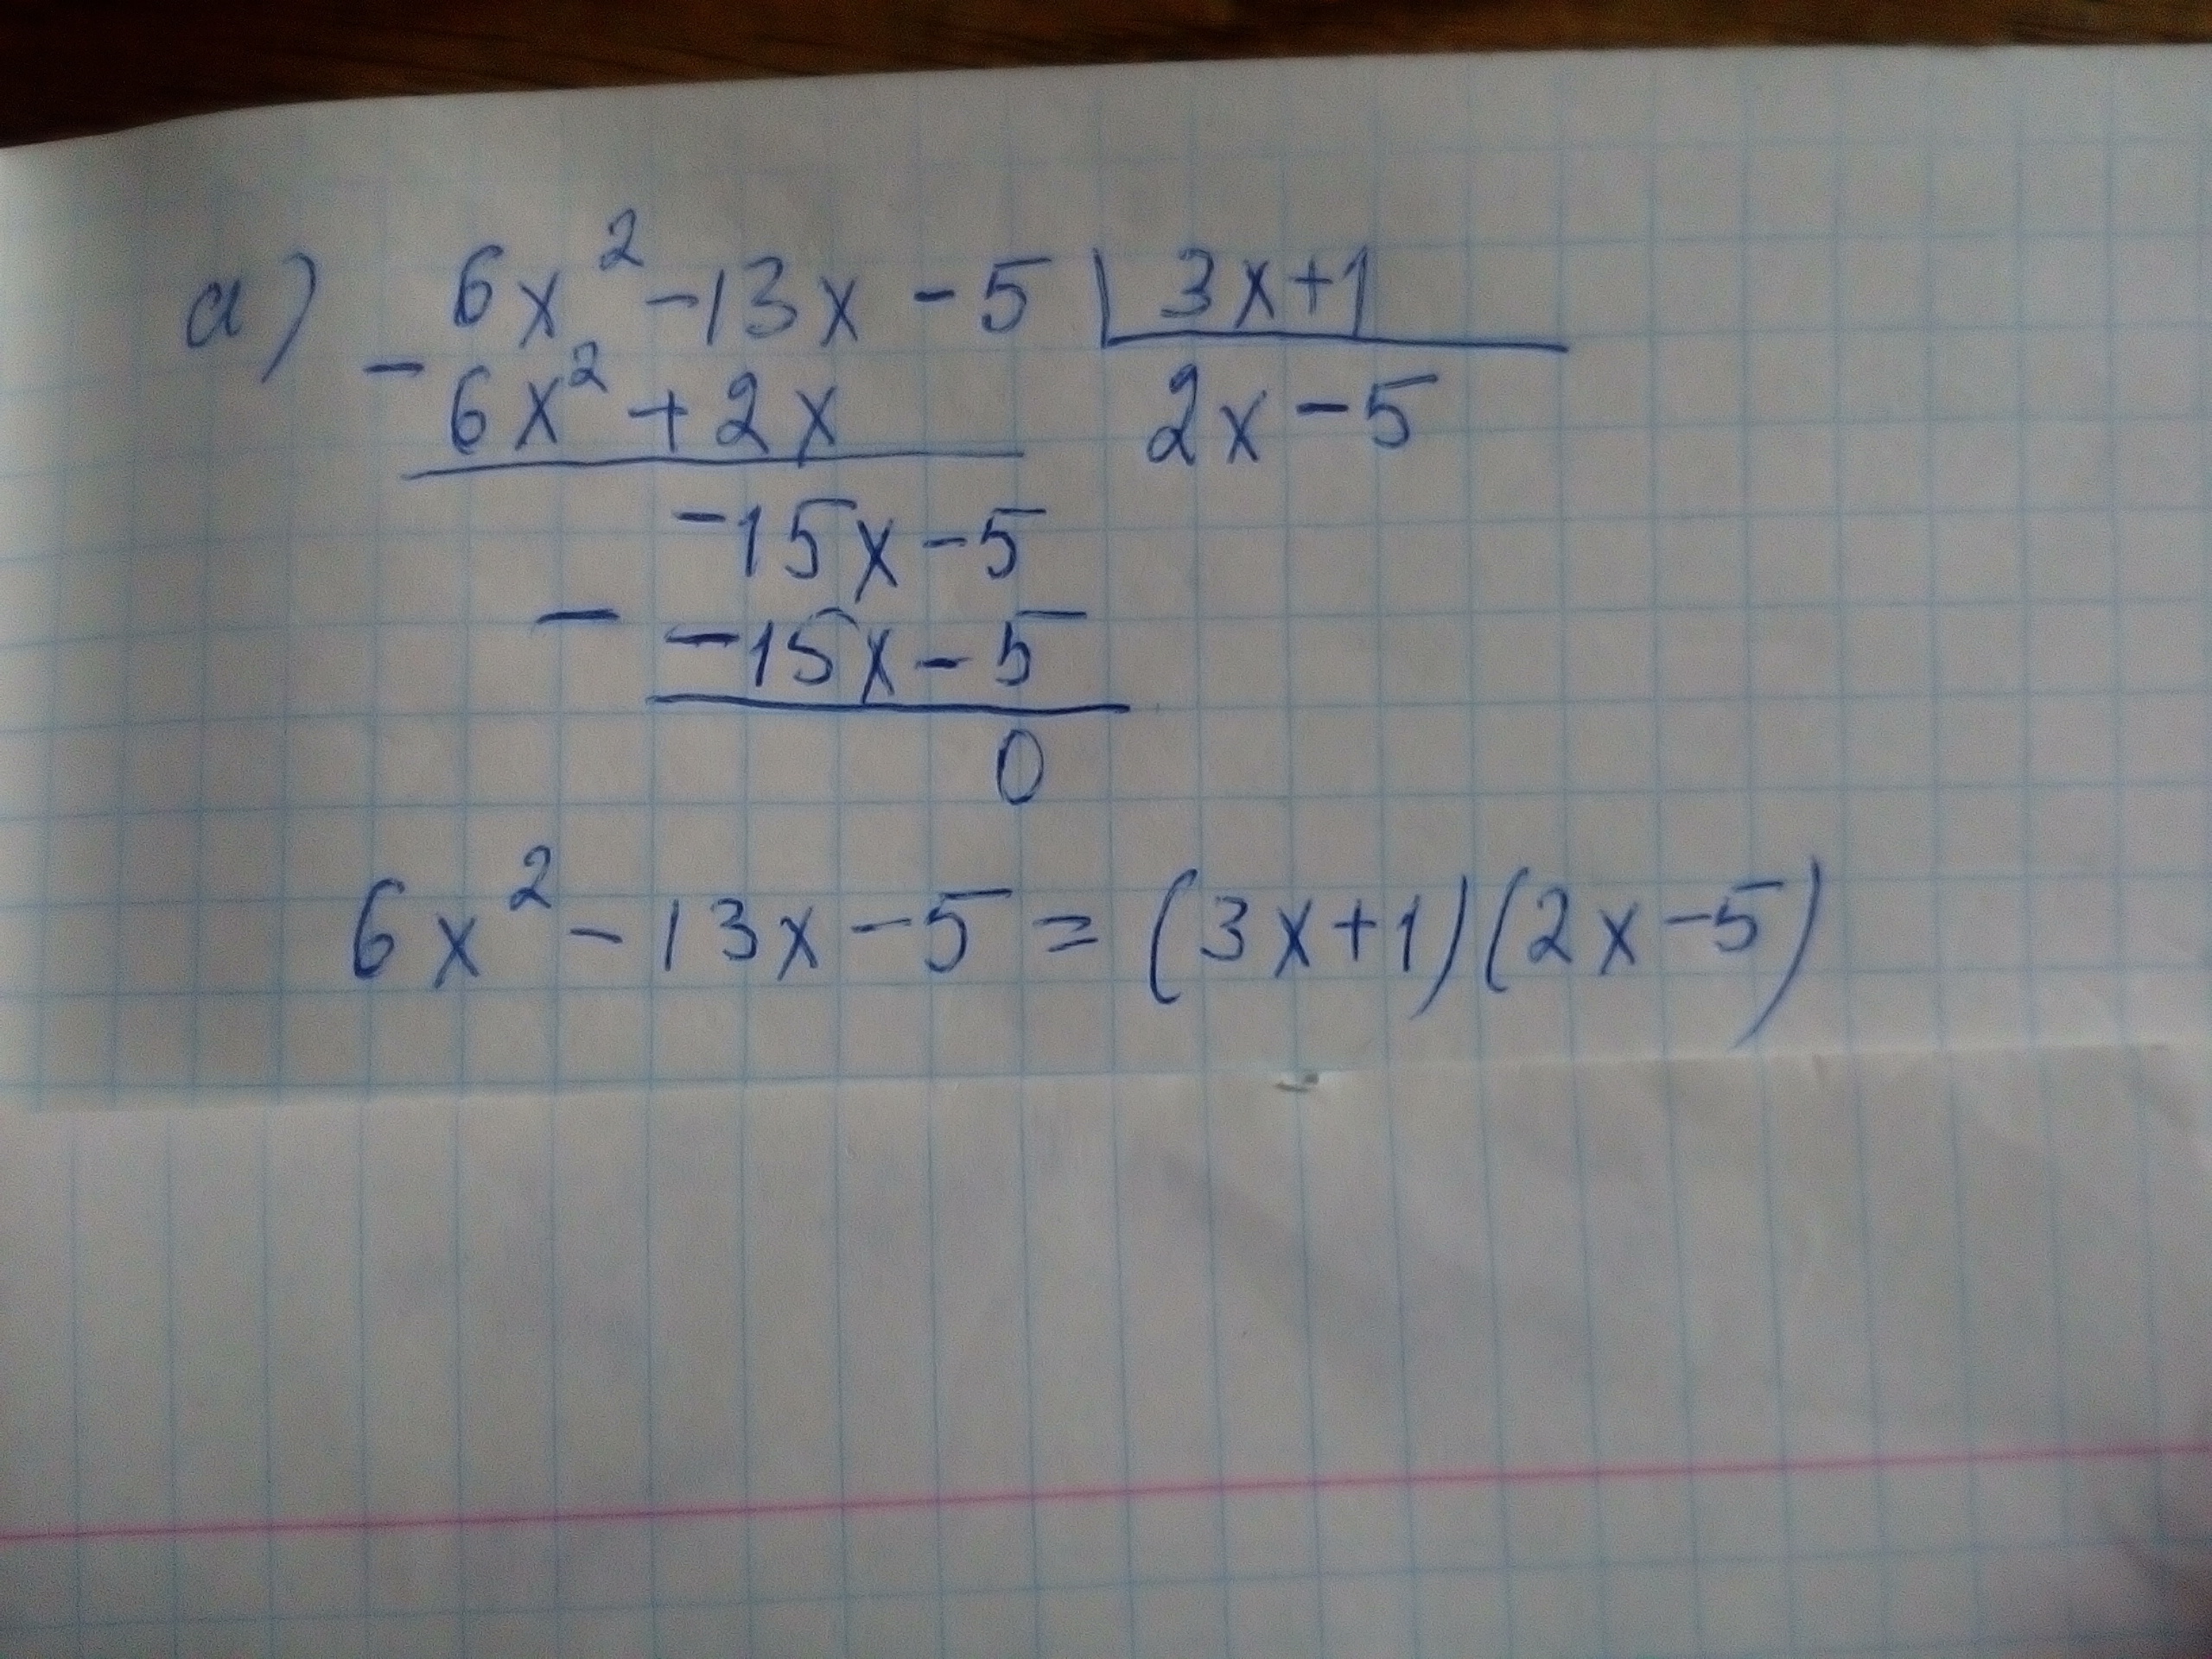 a) 6x² - 13x - 5 | 3x + 1
- 6x² + 2x 2x - 5
-15x - 5
- -15x - 5
0
6x² - 13x - 5 = (3x + 1)(2x - 5)